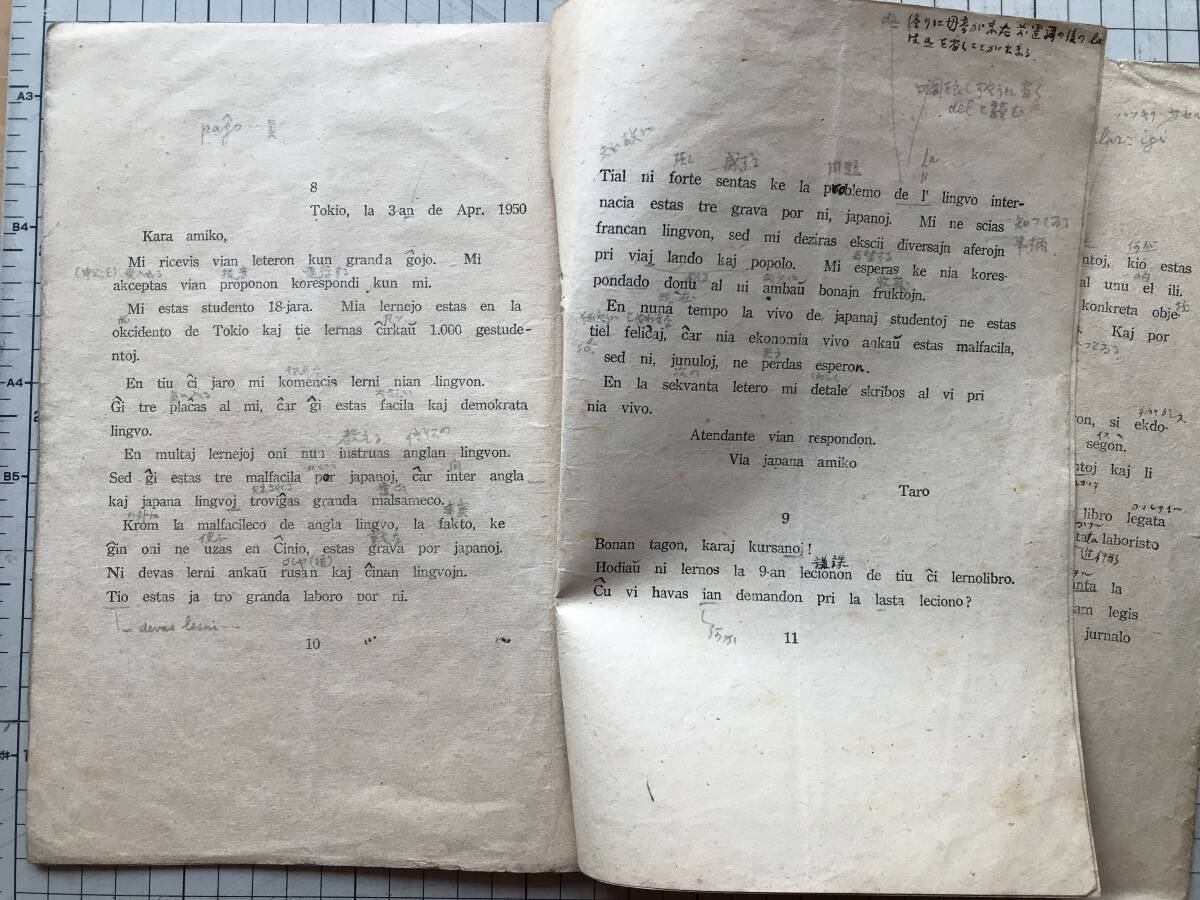 paĝo 頁
8
Tokio, la 3-an de Apr. 1950
Kara amiko,
Mi ricevis vian leteron kun granda ĝojo. Mi
akceptas vian proponon korespondi kun mi.
Mi estas studento 18-jara. Mia lernejo estas en la
okcidento de Tokio kaj tie lernas ĉirkaŭ 1.000 gestude-
ntoj.
En tiu ĉi jaro mi komencis lerni nian lingvon.
Ĝi tre plaĉas al mi, ĉar ĝi estas facila kaj demokrata
lingvo.
教える
En multaj lernejoj oni nun instruas anglan lingvon.
Sed ĝi estas tre malfacila por japanoj, ĉar inter angla
kaj japana lingvoj troviĝas granda malsameco.
事実
Krom la malfacileco de angla lingvo, la fakto, ke
使ふ
ĝin oni ne uzas en Ĉinio, estas grava por japanoj.
Ni devas lerni ankaŭ rusan kaj ĉinan lingvojn.
Tio estas ja tro granda laboro por ni.
devas lerni
10
de
delと読む
la
強く 感ずる 問題
Tial ni forte sentas ke la problemo de l' lingvo inter-
nacia estas tre grava por ni, japanoj. Mi ne scias
知ってる
francan lingvon, sed mi deziras ekscii diversajn aferojn
事柄
pri viaj lando kaj popolo. Mi esperas ke nia kores-
pondado donu al ni ambaŭ bonajn fruktojn.
En nuna tempo la vivo de japanaj studentoj ne estas
tiel feliĉaj, ĉar nia ekonomia vivo ankaŭ estas malfacila,
sed ni, junuloj, ne perdas esperon.
En la sekvanta letero mi detale skribos al vi pri
nia vivo.
Atendante vian respondon.
Via japana amiko
Taro
9
Bonan tagon, karaj kursanoj!
Hodiaŭ ni lernos la 9-an lecionon de tiu ĉi lernolibro.
Ĉu vi havas ian demandon pri la lasta leciono?
何か
11
ハッキリ サセル
igi
ntoj, kio estas
al unu el ili.
konkreta obje-
Kaj por
ron, si ekdo-
segôn.
ntoj kaj li
libro legata
laboristo
nta la
am legis
jurnalo